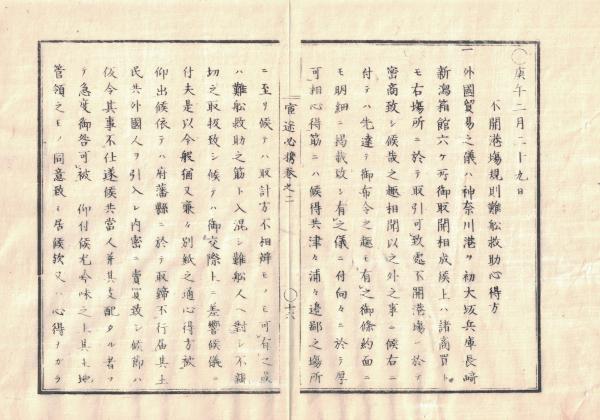 〇庚午二月二十九日
不開港場規則難船救助心得方
一外國貿易之儀ハ神奈川港ヲ初大坂兵庫長崎
新潟箱館六ケ所御取開相成候上ハ諸商買ト
モ右場所ニ於テ取引可致處不開港場ニ於テ
密商致シ候哉之趣相聞以之外之事ニ候右ニ
付テハ先達テ御布令之趣モ有之御條約面ニ
モ明細ニ掲載致シ有之儀ニ付向々ニ於テ厚
可相心得筋ニハ候得共津々浦々邊鄙之場所
宦途必携巻之二
〇十六
ニ至リ候テハ取計方不相辨モノモ可有之或
ハ難船救助之筋ト入混シ難船人ヘ對シ不親
切之取扱致シ候テハ御交際上ニ差響候儀ニ
付夫是以今般猶又兼々別紙之通心得方被
仰出候依テハ府藩縣ニ於テ取締不行届其土
民共外國人ヲ引入レ内密ニ賣買致シ候節ハ
假令其事不仕遂候共當人并其支配タル者ヲ
テ急度御咎可被 仰付候尤吟味之上其土地
管領之モノ同意致シ居候欤又ハ心得ナガラ